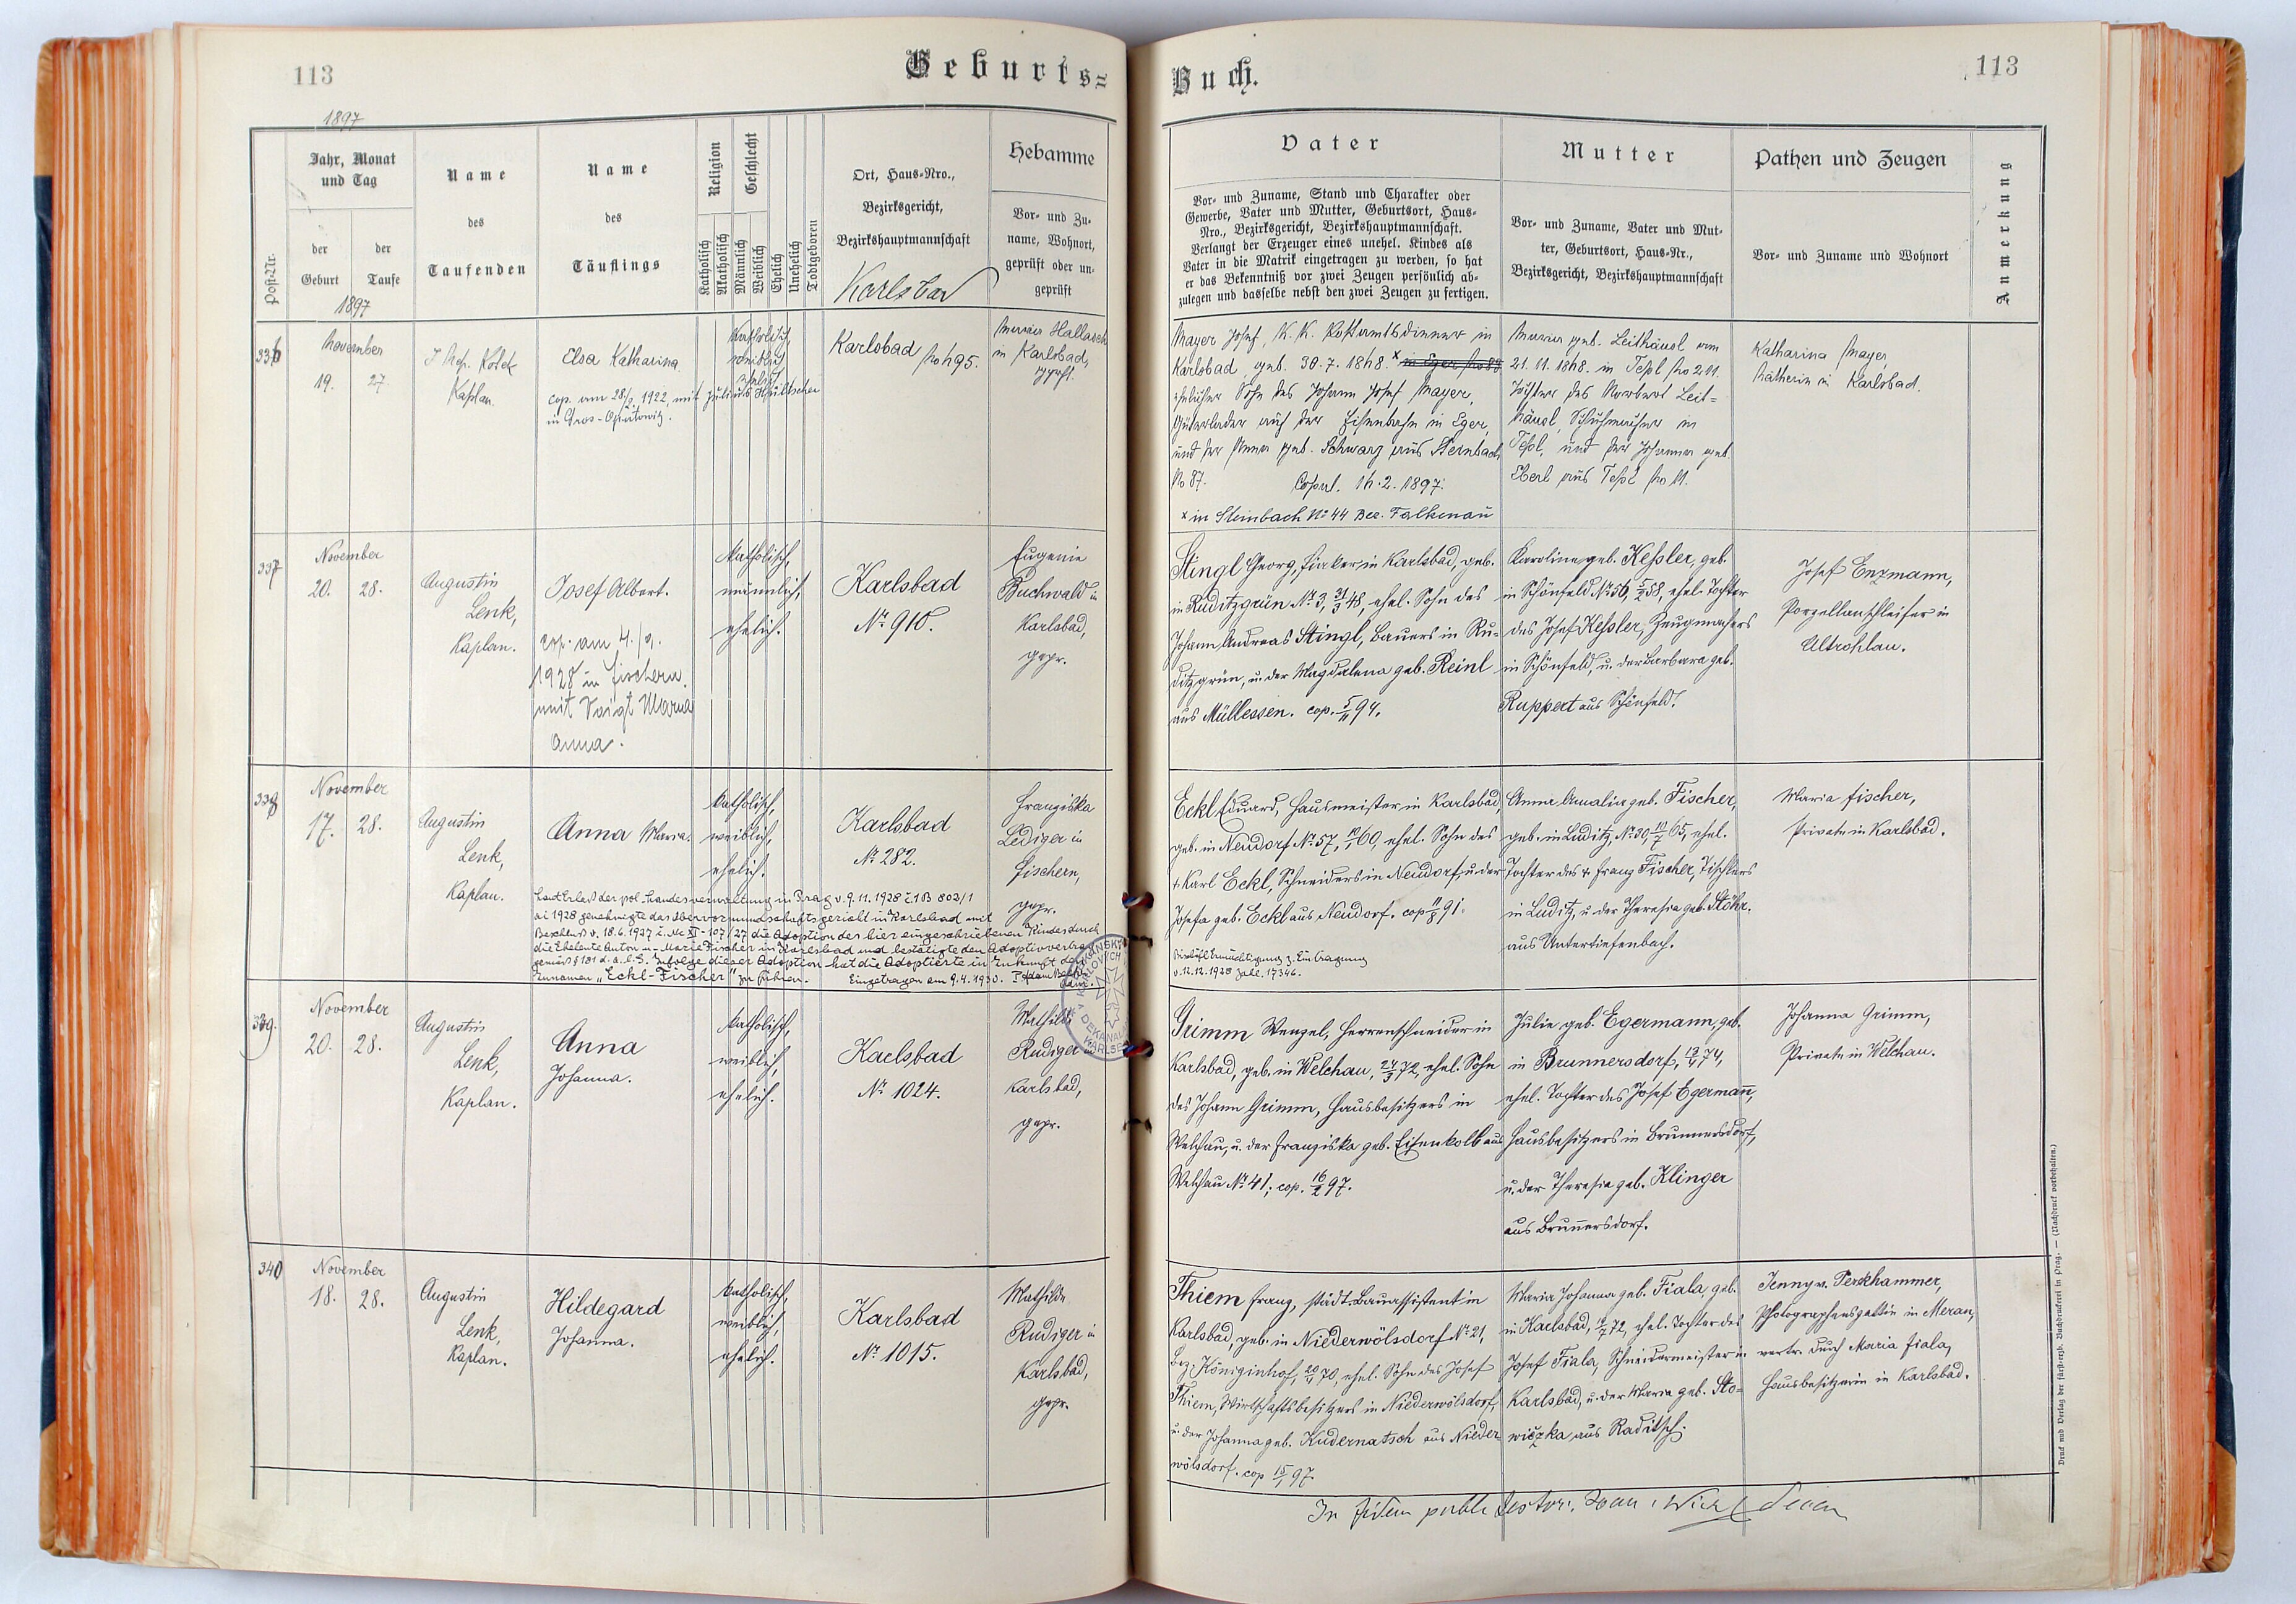 113
Geburts=
Buch.
113
1897
Post-Nr.
Jahr, Monat
und Tag
der
Geburt
der
Taufe
1897
Name
des
Taufenden
Name
des
Täuflings
Religion
Katholisch
Akatholisch
Geschlecht
Männlich
Weiblich
Ehelich
Unehelich
Todtgeboren
Ort, Haus-Nro.,
Bezirksgericht,
Bezirkshauptmannschaft
Karlsbad
Hebamme
Vor- und Zu-
name, Wohnort,
geprüft oder un-
geprüft
Vater
Vor- und Zuname, Stand und Charakter oder
Gewerbe, Vater und Mutter, Geburtsort, Haus-
Nro., Bezirksgericht, Bezirkshauptmannschaft.
Verlangt der Erzeuger eines unehel. Kindes als
Vater in die Matrik eingetragen zu werden, so hat
er das Bekenntniß vor zwei Zeugen persönlich ab-
zulegen und dasselbe nebst den zwei Zeugen zu fertigen.
Mutter
Vor- und Zuname, Vater und Mut-
ter, Geburtsort, Haus-Nr.,
Bezirksgericht, Bezirkshauptmannschaft
Pathen und Zeugen
Vor- und Zuname und Wohnort
Anmerkung
336
November
19. 27.
Kaplan.
Elsa Katharina
cop. am 28/2 1922, mit Julius
in Gros-
katholisch,
weiblich
ehelich
Karlsbad No 495.
Maria Hallasch
in Karlsbad,
gepft.
Mayer Josef, K. K. Postamtsdiener in
Karlsbad, geb. 30.7.1868. x in Eger No 87
ehelicher Sohn des Johann Josef Mayer,
auf der Eisenbahn in Eger,
und der Anna geb. Schwarz aus Steinbach
No 87. Copul. 16.2.1897.
x in Steinbach No 44 Bez. Falkenau
Maria geb. Leithäusl am
21.11.1868. in Tepl No 211.
Tochter des Norbert Leit=
häusl, Schuhmacher in
Tepl, und der Johanna geb.
Eberl aus Tepl No 11.
Katharina Mayer,
Nätherin in Karlsbad.
337
November
20. 28.
Augustin
Lenk,
Kaplan.
Josef Albert.
cop. am 4./9.
1928 in Fischern
mit Voigt Maria
Anna.
katholisch,
männlich,
ehelich.
Karlsbad
No 910.
Eugenie
Buchwald in
Karlsbad,
gepr.
Stingl Georg, Fiaker in Karlsbad, geb.
in Ruditzgrün No 3, 31/3 48, ehel. Sohn des
Johann Andreas Stingl, Bauers in Ru=
ditzgrün, u. der Magdalena geb. Reinl
aus Müllessen. cop. 5/11 94.
Karoline geb. Keßler, geb.
in Schönfeld No 56, 5/2 58, ehel. Tochter
des Josef Keßler, Zeugmachers
in Schönfeld, u. der Barbara geb.
Ruppert aus Schönfeld.
Josef Enzmann,
Porzellanschleifer in
Altrohlau.
338
November
17. 28.
Augustin
Lenk,
Kaplan.
Anna Maria.
katholisch,
weiblich,
ehelich.
Karlsbad
No 282.
Franziska
Lediger in
Fischern,
gepr.
Laut Erlaß der pol. Landesverwaltung in Prag v. 9.11.1928 Z. 1B 802/1
ai 1928 genehmigte das Obervormundschaftsgericht in Karlsbad mit
Beschluß v. 18.6.1927 Z. Nc XI-107/27 die Adoption des hier eingeschriebenen Kindes durch
die Eheleute Anton u. Marie Fischer in Karlsbad und bestätigte den Adoptivvertrag
gemäß § 181 d. a. b. G. Infolge dieser Adoption hat die Adoptierte in Zukunft den
Zunamen „Eckl-Fischer" zu führen. Eingetragen am 9.4.1930.
Eckl Eduard, Hausmeister in Karlsbad,
geb. in Neudorf No 57, 10/1 60, ehel. Sohn des
+ Karl Eckl, Schneiders in Neudorf, u. der
Josefa geb. Eckl aus Neudorf. cop 11/8 91.
Bischöfl. Ermächtigung z. Eintragung
v. 12.12.1928 Zahl. 17346.
Anna Amalia geb. Fischer,
geb. in Luditz, No 30, 10/7 65, ehel.
Tochter des + Franz Fischer, Tischlers
in Luditz, u. der Theresia geb. Stöhr.
aus Untertiefenbach.
Maria Fischer,
Private in Karlsbad.
339.
November
20. 28.
Augustin
Lenk,
Kaplan.
Anna
Johanna.
katholisch,
weiblich,
ehelich.
Karlsbad
No 1024.
Mathilde
Rudiger in
Karlsbad,
gepr.
Grimm Wenzel, Herrenschneider in
Karlsbad, geb. in Welchau, 24/3 72, ehel. Sohn
des Johann Grimm, Hausbesitzers in
Welchau, u. der Franziska geb. Eisenkolb aus
Welchau No 41; cop. 16/2 97.
Julie geb. Egermann, geb.
in Brunnersdorf, 12/4 74,
ehel. Tochter des Josef Egermann,
Hausbesitzers in Brunnersdorf,
u. der Theresia geb. Klinger
aus Brunnersdorf.
Johanna Grimm,
Private in Welchau.
340
November
18. 28.
Augustin
Lenk,
Kaplan.
Hildegard
Johanna.
katholisch,
weiblich,
ehelich.
Karlsbad
No 1015.
Mathilde
Rudiger in
Karlsbad,
gepr.
Thiem Franz, städt. Bauassistent in
Karlsbad, geb. in Niederwölsdorf No 21,
Bez. Königinhof, 20/1 70, ehel. Sohn des Josef
Thiem, Wirtschaftsbesitzers in Niederwölsdorf,
u. der Johanna geb. Kudernatsch aus Nieder=
wölsdorf. cop 15/1 97.
Maria Johanna geb. Fiala, geb.
in Karlsbad, 72, ehel. Tochter des
Josef Fiala, Schneidermeister in
Karlsbad, u. der Maria geb. Sto=
wiczka aus Raditsch.
Jenny v. Perkhammer,
Photographensgattin in Meran,
vertr. durch Maria Fiala,
Hausbesitzerin in Karlsbad.
In fidem public
Druck und Verlag der fürst-erzb. Buchdruckerei in Prag. — (Nachdruck vorbehalten.)